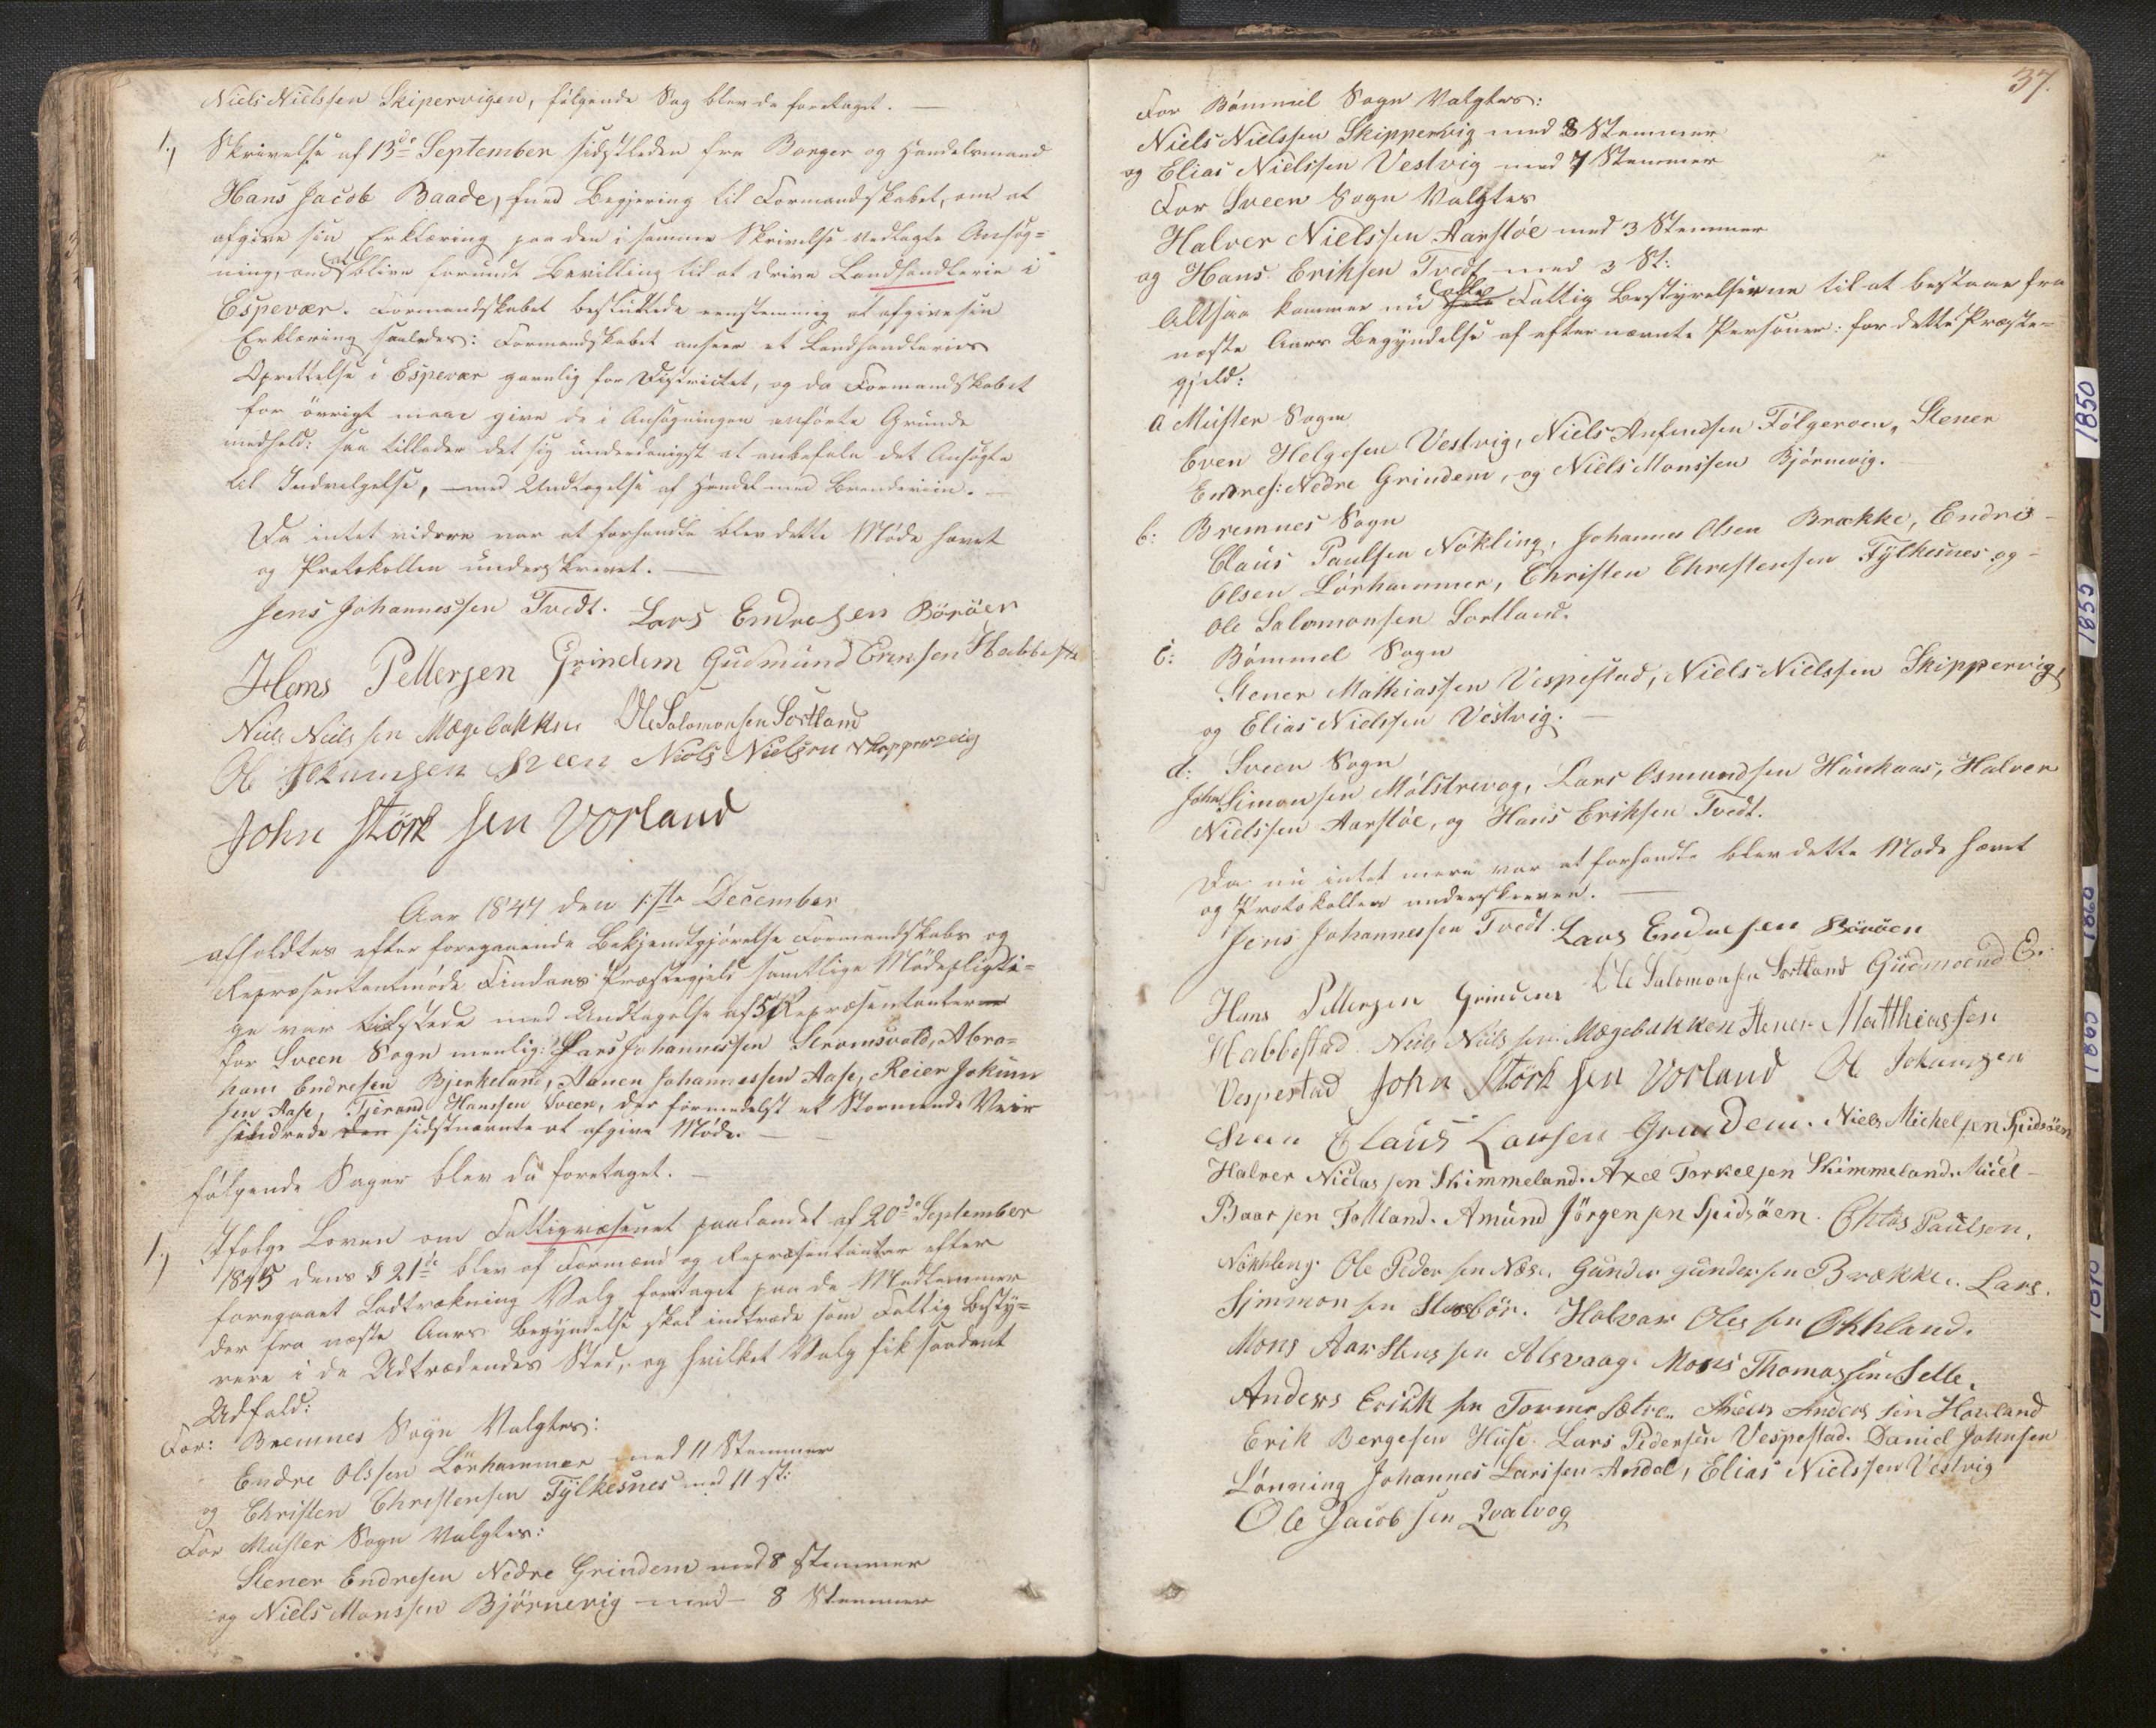 Niels Nielssen Skipervigen, følgende Sag blev da foretaget. —
1.) Skrivelse af 13de September sidstleden fra Borger og Handelsmand
Hans Jacob Baade, hvis Begjæring til Formandskabet, om at
afgive sin Erklæring paa den i samme Skrivelse vedlagte Ansøg=
ning, om at blive forundt Bevilling til at drive Landhandlerie i
Espevær. Formandskabet besluttede eenstemmig at afgive sin
Erklæring saaledes: Formandskabet anseer et Landhandleries
Oprettelse i Espevær gavnlig for Districtet, og da Formandskabet
for øvrigt maae give de i Ansøgningen anførte Grunde
medhold: saa tillader det sig underdanigst at anbefale det Ansøgte
til Indvilgelse, — med Undtagelse af Handel med Brændeviin. —
Da intet videre var at forhandle blev dette Møde hævet
og Protokollen underskrevet. —
Jens Johannessen Tvedt. Lars Endresen Böröen
Hans Pettersen Grindem Gudmund Eriksen Habbestad
Niels Nielssen Mægebakken Ole Salomonsen Sortland
Ole Jokumsen Sveen Niels Nielsen Skippervig
John Störksen Vorland
Aar 1847 den 1ste December
afholdtes efter foregaaende Bekjendtgjørelse Formandskabs og
Repræsentantmøde Findaas Præstegjeld samtlige Mødepligti=
ge var tilstede med Undtagelse af 5 Repræsentanterne
for Sveen Sogn nemlig: Lars Johannessen Strømsvold, Abra=
ham Endresen Bjerkeland, Aanen Johannessen Aase, Reier Jokum
sen Aase, Tjerand Hanssen Sveen, der formedelst et Stormende Veir
hindrede den sidstnævnte at afgive Møde. —
følgende Sager blev da foretaget. —
1.) Ifølge Loven om Fattigvæsenet paalandet af 20de September
1845 dens § 21de blev af Formænd og Repræsentanter efter
foregaaet Lodtrækning Valg foretaget paa de Medlemmer
der fra næste Aars Begyndelse skal indtræde som Fattig Besty=
rere i de Udtrædendes Sted, og hvilket Valg fik saadant
Udfald:
For: Bremnes Sogn Valgtes:
Endre Olssen Lörhammer med 11 Stemmer
og Christen Christensen Fylkesnes med 11 st:
For Møster Sogn Valgtes:
Stener Endresen Nedre Grindem med 8 stemmer
og Niels Monssen Bjørnevig med — 8 Stemmer
37.
For Bömmel Sogn Valgtes:
Niels Nielssen Skippervig med 8 Stemmer
og Elias Nielssen Vestvig med 7 Stemmer
For Sveen Sogn Valgtes
Halver Nielssen Aarsløe med 3 Stemmer
og Hans Eriksen Tvedt med 3 St:
Altsaa kommer nu alle Fattig Bestyrelserne til at bestaae fra
næste Aars Begyndelse af efternævnte Personer: for dette Præste=
gjeld:
a Møster Sogn
Even Helgesen Vestvig, Niels Anfindsen Følgeroen, Stener
Endres: Nedre Grindem, og Niels Monssen Bjørnevig.
b: Bremnes Sogn
Claus Paulsen Nökling, Johannes Olsen Brække, Endre
Olsen Lörhammer, Christen Christensen Fylkesnes og
Ole Salomonsen Sortland.
c: Bömmel Sogn
Stener Mathiassen Vespestad, Niels Nielssen Skippervig,
og Elias Nielssen Vestvig. —
d: Sveen Sogn
John Simonsen Mølstrevog, Lars Osmundsen Haukaas, Halver
Nielssen Aarsløe, og Hans Eriksen Tvedt.
Da nu intet mere var at forhandle blev dette Møde hævet
og Protokollen underskreven. —
Jens Johannessen Tvedt. Lars Endresen Böröen
Hans Pettersen Grindem Ole Salomonsen Sortland Gudmund E.
Habbestad Niels Nielssen Mægebakken Stener Matthiassen
Vespestad John Störksen Vorland Ole Jokumsen
Sveen Claus Larssen Grindem. Niels Mickelsen Spidsöen
Halver Niclassen Skimmeland. Axel Torkelsen Skimmeland.
Baarsen Folland. Amund Jörgensen Spidsöen. Clas Paulsen.
Nökkleng. Ole Pedersen Næse. Gunder Gundersen Brække. Lars.
Simmonsen Stusböe. Halvar Olessen Økhland.
Mons Aarstensen Alsvaag. Mons Thomassen Selle.
Anders Erickssen Tormesætre. Anders Hovland
Erik Bergesen Huse. Lars Pedersen Vespestad. Daniel Johnsen
Lönning Johannes Larssen Andal, Elias Nielssen Vestvig
Ole Jacobsen Qvalvog
1850
1855
1860
1865
1870